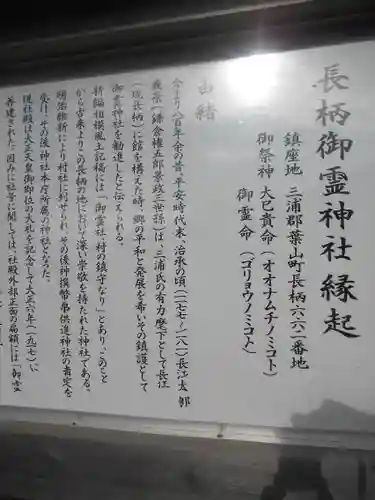 長柄御霊神社縁起
鎮座地 三浦郡葉山町長柄六六二番地
御祭神 大己貴命(オオナムチノミコト)
御霊命(ゴリョウノミコト)
由緒
今より八百年余の昔、平安時代末、治承の頃(一一七七~八一)長江太郎
義景(鎌倉権五郎景政三世孫)は、三浦氏の有力麾下として長江
(現長柄)に館を構えた時、郷の平和と発展を希いその鎮護として
御霊神社を勧進したと伝えられる。
新編相模風土記稿には「御霊社村の鎮守なり」とあり、このこと
から古来よりこの長柄の地において深い崇敬を持たれた神社である。
明治維新により村社に列せられ、その後神饌幣帛供進神社の指定を
受け、その後神社本庁所属の神社となった。
現社殿は大正天皇御即位の大礼を記念して大正六年(一九一七)に
再建された。因みに社号に関しては、社殿外拝正面の扁額には「御霊